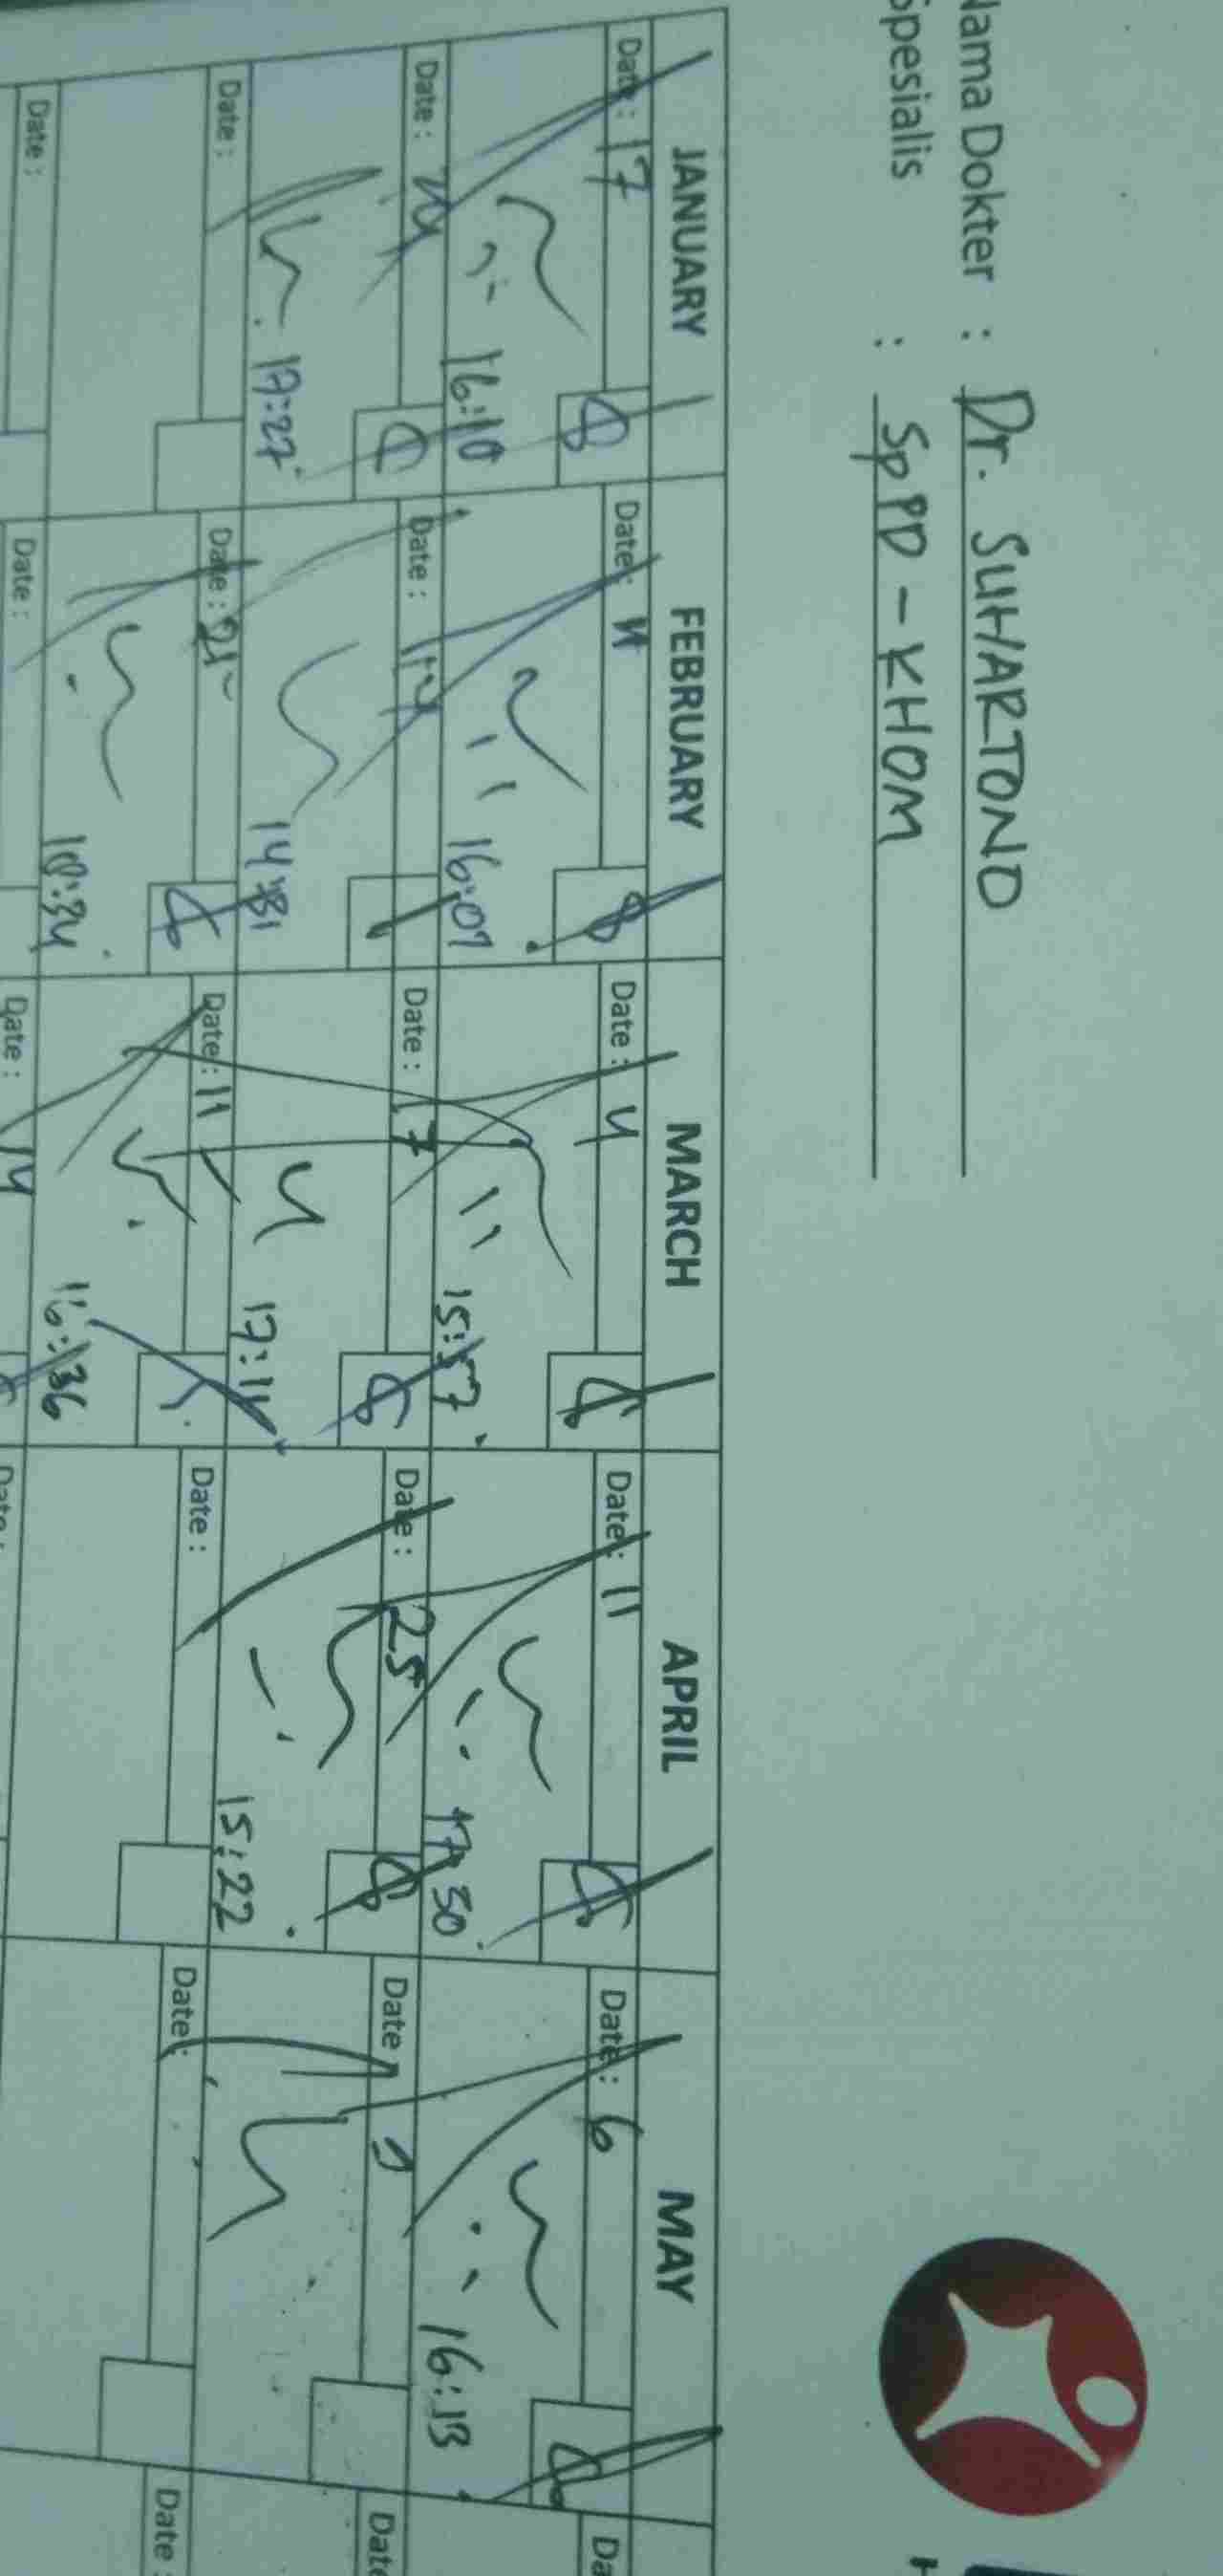 Nama Dokter : Dr. SUHARTONO
Spesialis : SpPD - KHOM
JANUARY FEBRUARY MARCH APRIL MAY
Date : 17 Date : 4 Date : 4 Date : 11 Date : 6
16:10 16:07 15:57 17:30 16:13
Date : 24 Date : 14 Date : 7 Date : 25 Date :
17:27 14:31 17:11 15:22
Date : Date : 21 Date : 11 Date : Date : Date :
18:34 16:36
Date : Date : Date : 14